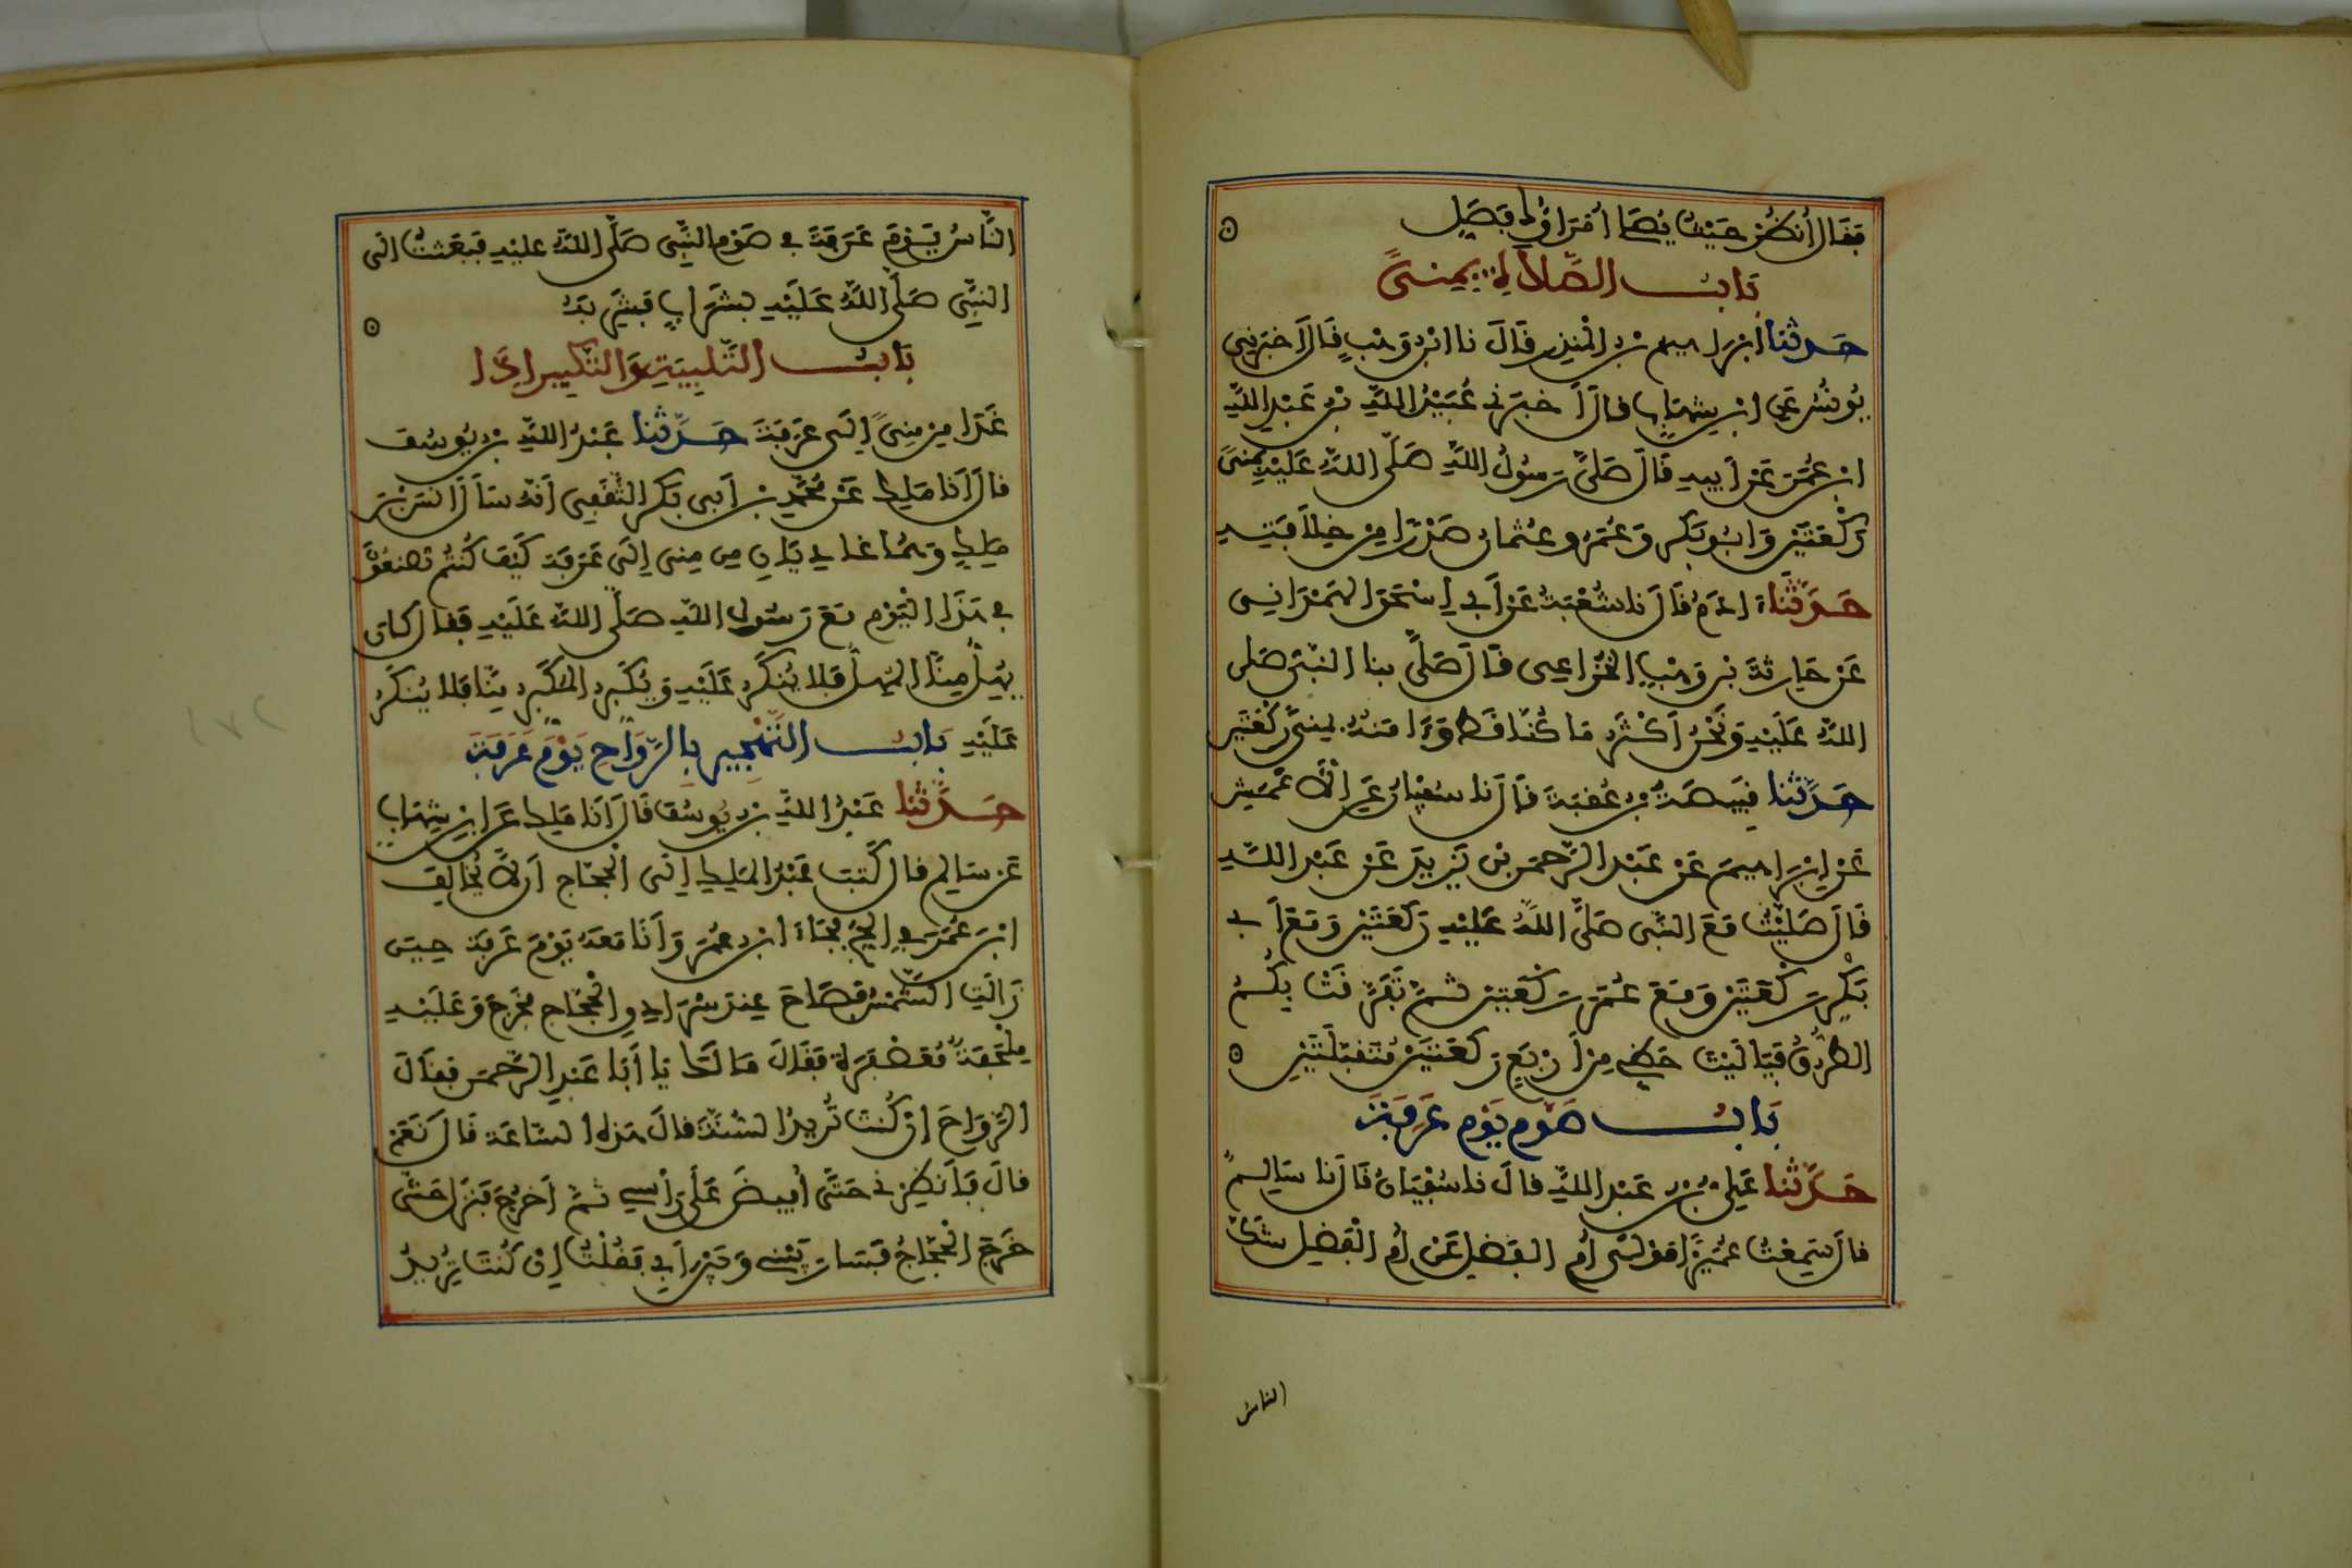 فقال انظر حيث يصلي امراؤك فصل
باب الصلاة بمنى
حدثنا ابراهيم بن المنذر قال نا ابن وهب قال اخبرني
يونس عن ابن شهاب قال أخبرني عبيد الله بن عبد الله
ابن عمر عن أبيه قال صلى رسول الله صلى الله عليه بمنى
ركعتين وابو بكر وعمر وعثمان صدرا من خلافته
حدثنا ءادم قال نا شعبة عن أبي إسحق الهمداني
عن حارثة بن وهب الخزاعي قال صلى بنا النبي صلى
الله عليه ونحن أكثر ما كنا قط وءامنه بمنى ركعتين
حدثنا قبيصة بن عقبة قال نا سفيان عن الأعمش
عن إبراهيم عن عبد الرحمن بن يزيد عن عبد الله
قال صليت مع النبي صلى الله عليه ركعتين ومع أبي
بكر ركعتين ومع عمر ركعتين ثم تفرقت بكم
الطرق فيا ليت حظي من أربع ركعتين متقبلتين
باب صوم يوم عرفة
حدثنا علي بن عبد الله قال نا سفيان قال نا سالم
قال سمعت عميرا مولى أم الفضل عن أم الفضل شك
الناس
الناس يوم عرفة في صوم النبي صلى الله عليه فبعثت الى
النبي صلى الله عليه بشراب فشربه
باب التلبية والتكبير إذا
غدا من منى إلى عرفة حدثنا عبد الله بن يوسف
قال أنا مالك عن محمد بن أبي بكر الثقفي أنه سأل أنس بن
مالك وهما غاديان من منى إلى عرفة كيف كنتم تصنعون
في هذا اليوم مع رسول الله صلى الله عليه فقال كان
يهل منا المهل فلا ينكر عليه ويكبر المكبر منا فلا ينكر
عليه باب التهجير بالرواح يوم عرفة
حدثنا عبد الله بن يوسف قال أنا مالك عن ابن شهاب
عن سالم قال كتب عبد الملك إلى الحجاج أن لا يخالف
ابن عمر في الحج فجاء ابن عمر وأنا معه يوم عرفة حين
زالت الشمس فصاح عند سرادق الحجاج فخرج وعليه
ملحفة معصفرة فقال ما لك يا أبا عبد الرحمن فقال
الرواح إن كنت تريد السنة قال هذه الساعة قال نعم
قال فأنظرني حتى أفيض على رأسي ثم أخرج فنزل حتى
خرج الحجاج فسار بيني وبين أبي فقلت إن كنت تريد